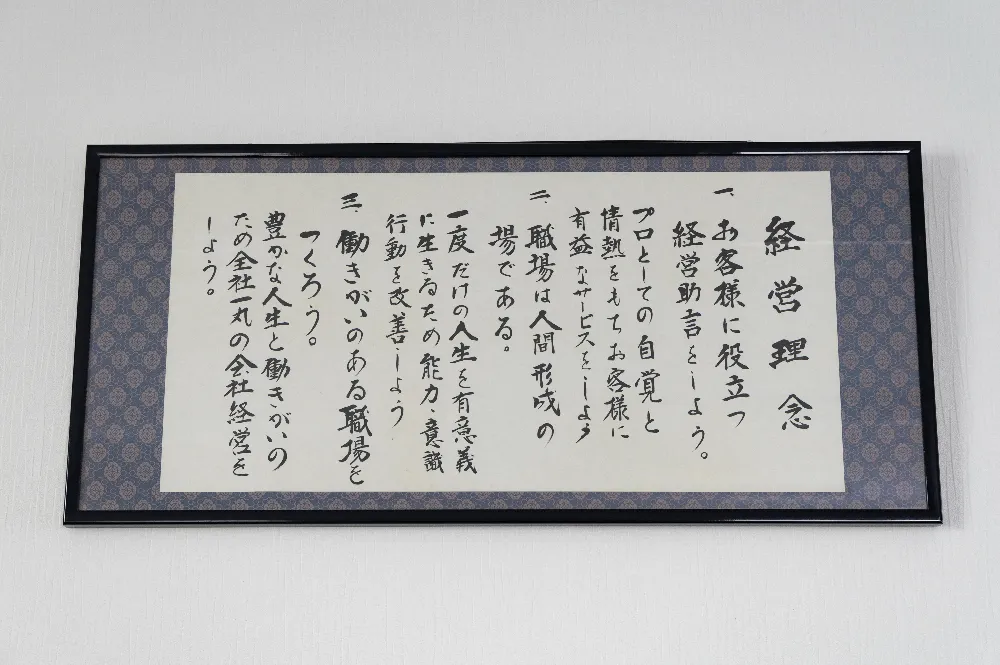 経営理念
一、お客様に役立つ
経営助言をしよう。
プロとしての自覚と
情熱をもちお客様に
有益なサービスをしよう
二、職場は人間形成の
場である。
一度だけの人生を有意義
に生きるため能力、意識
行動を改善しよう
三、働きがいのある職場を
つくろう。
豊かな人生と働きがいの
ための全社一丸の会社経営を
しよう。